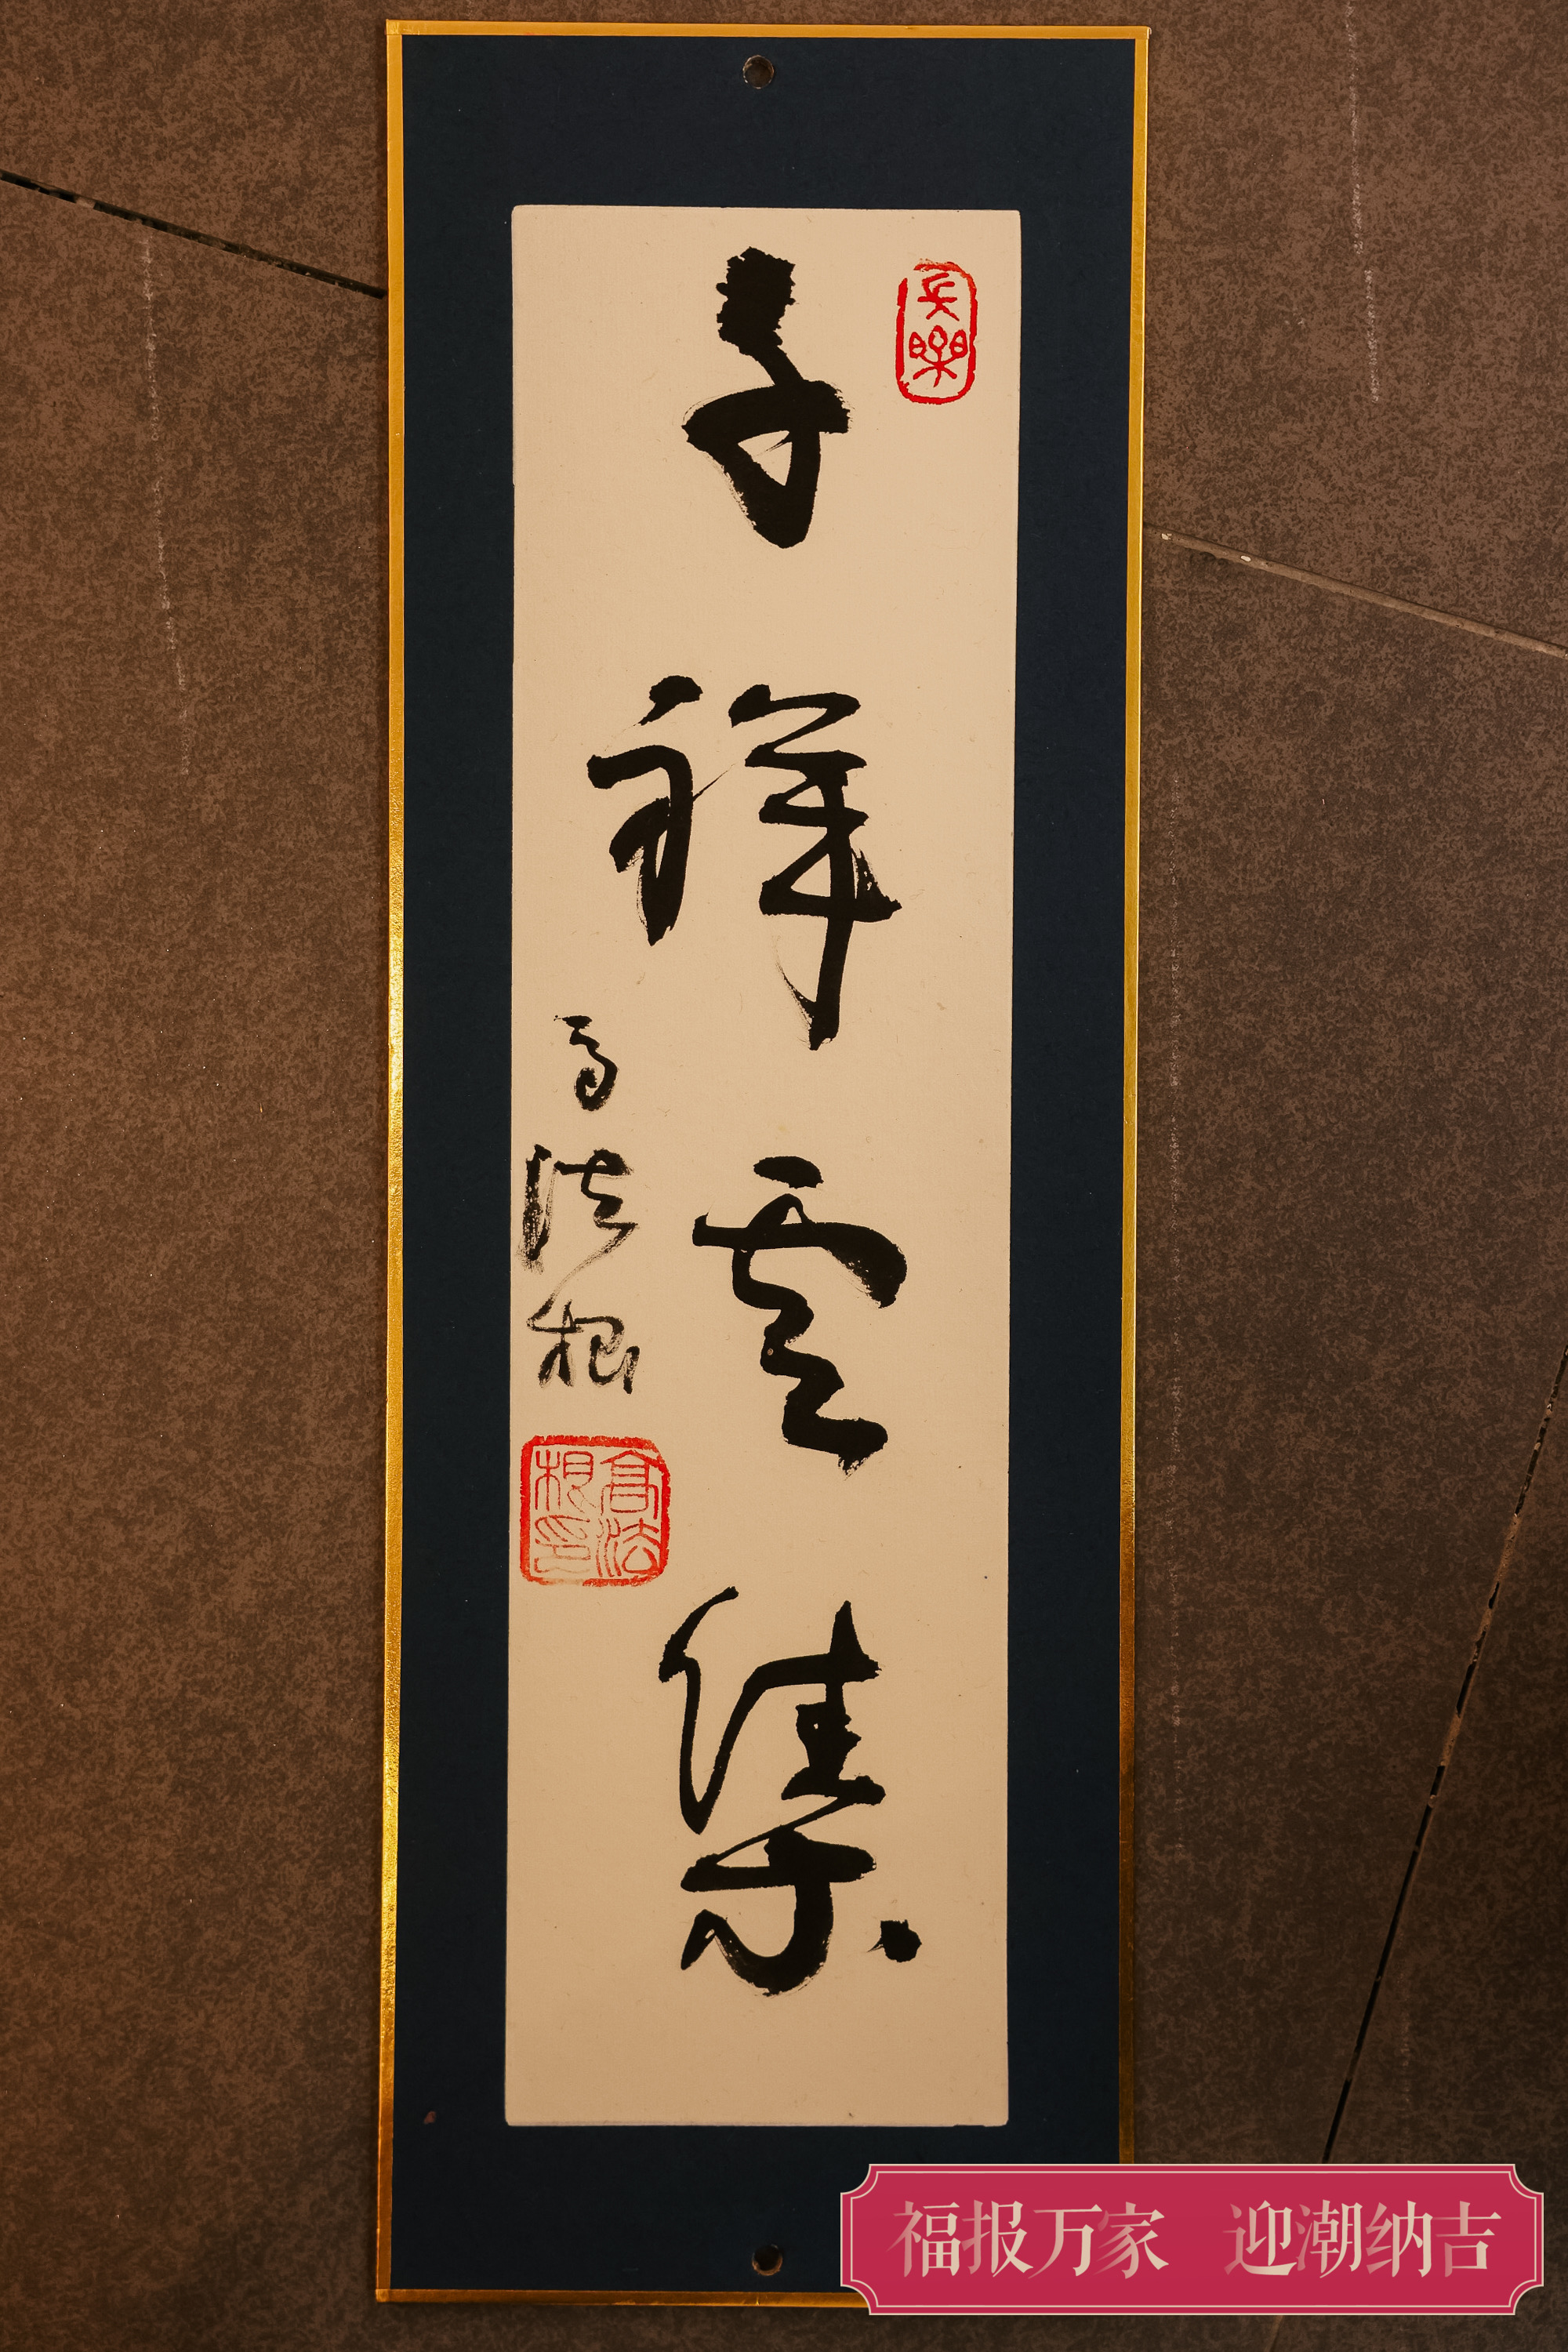 千祥雲集
高法根
高法根印
福报万家 迎潮纳吉